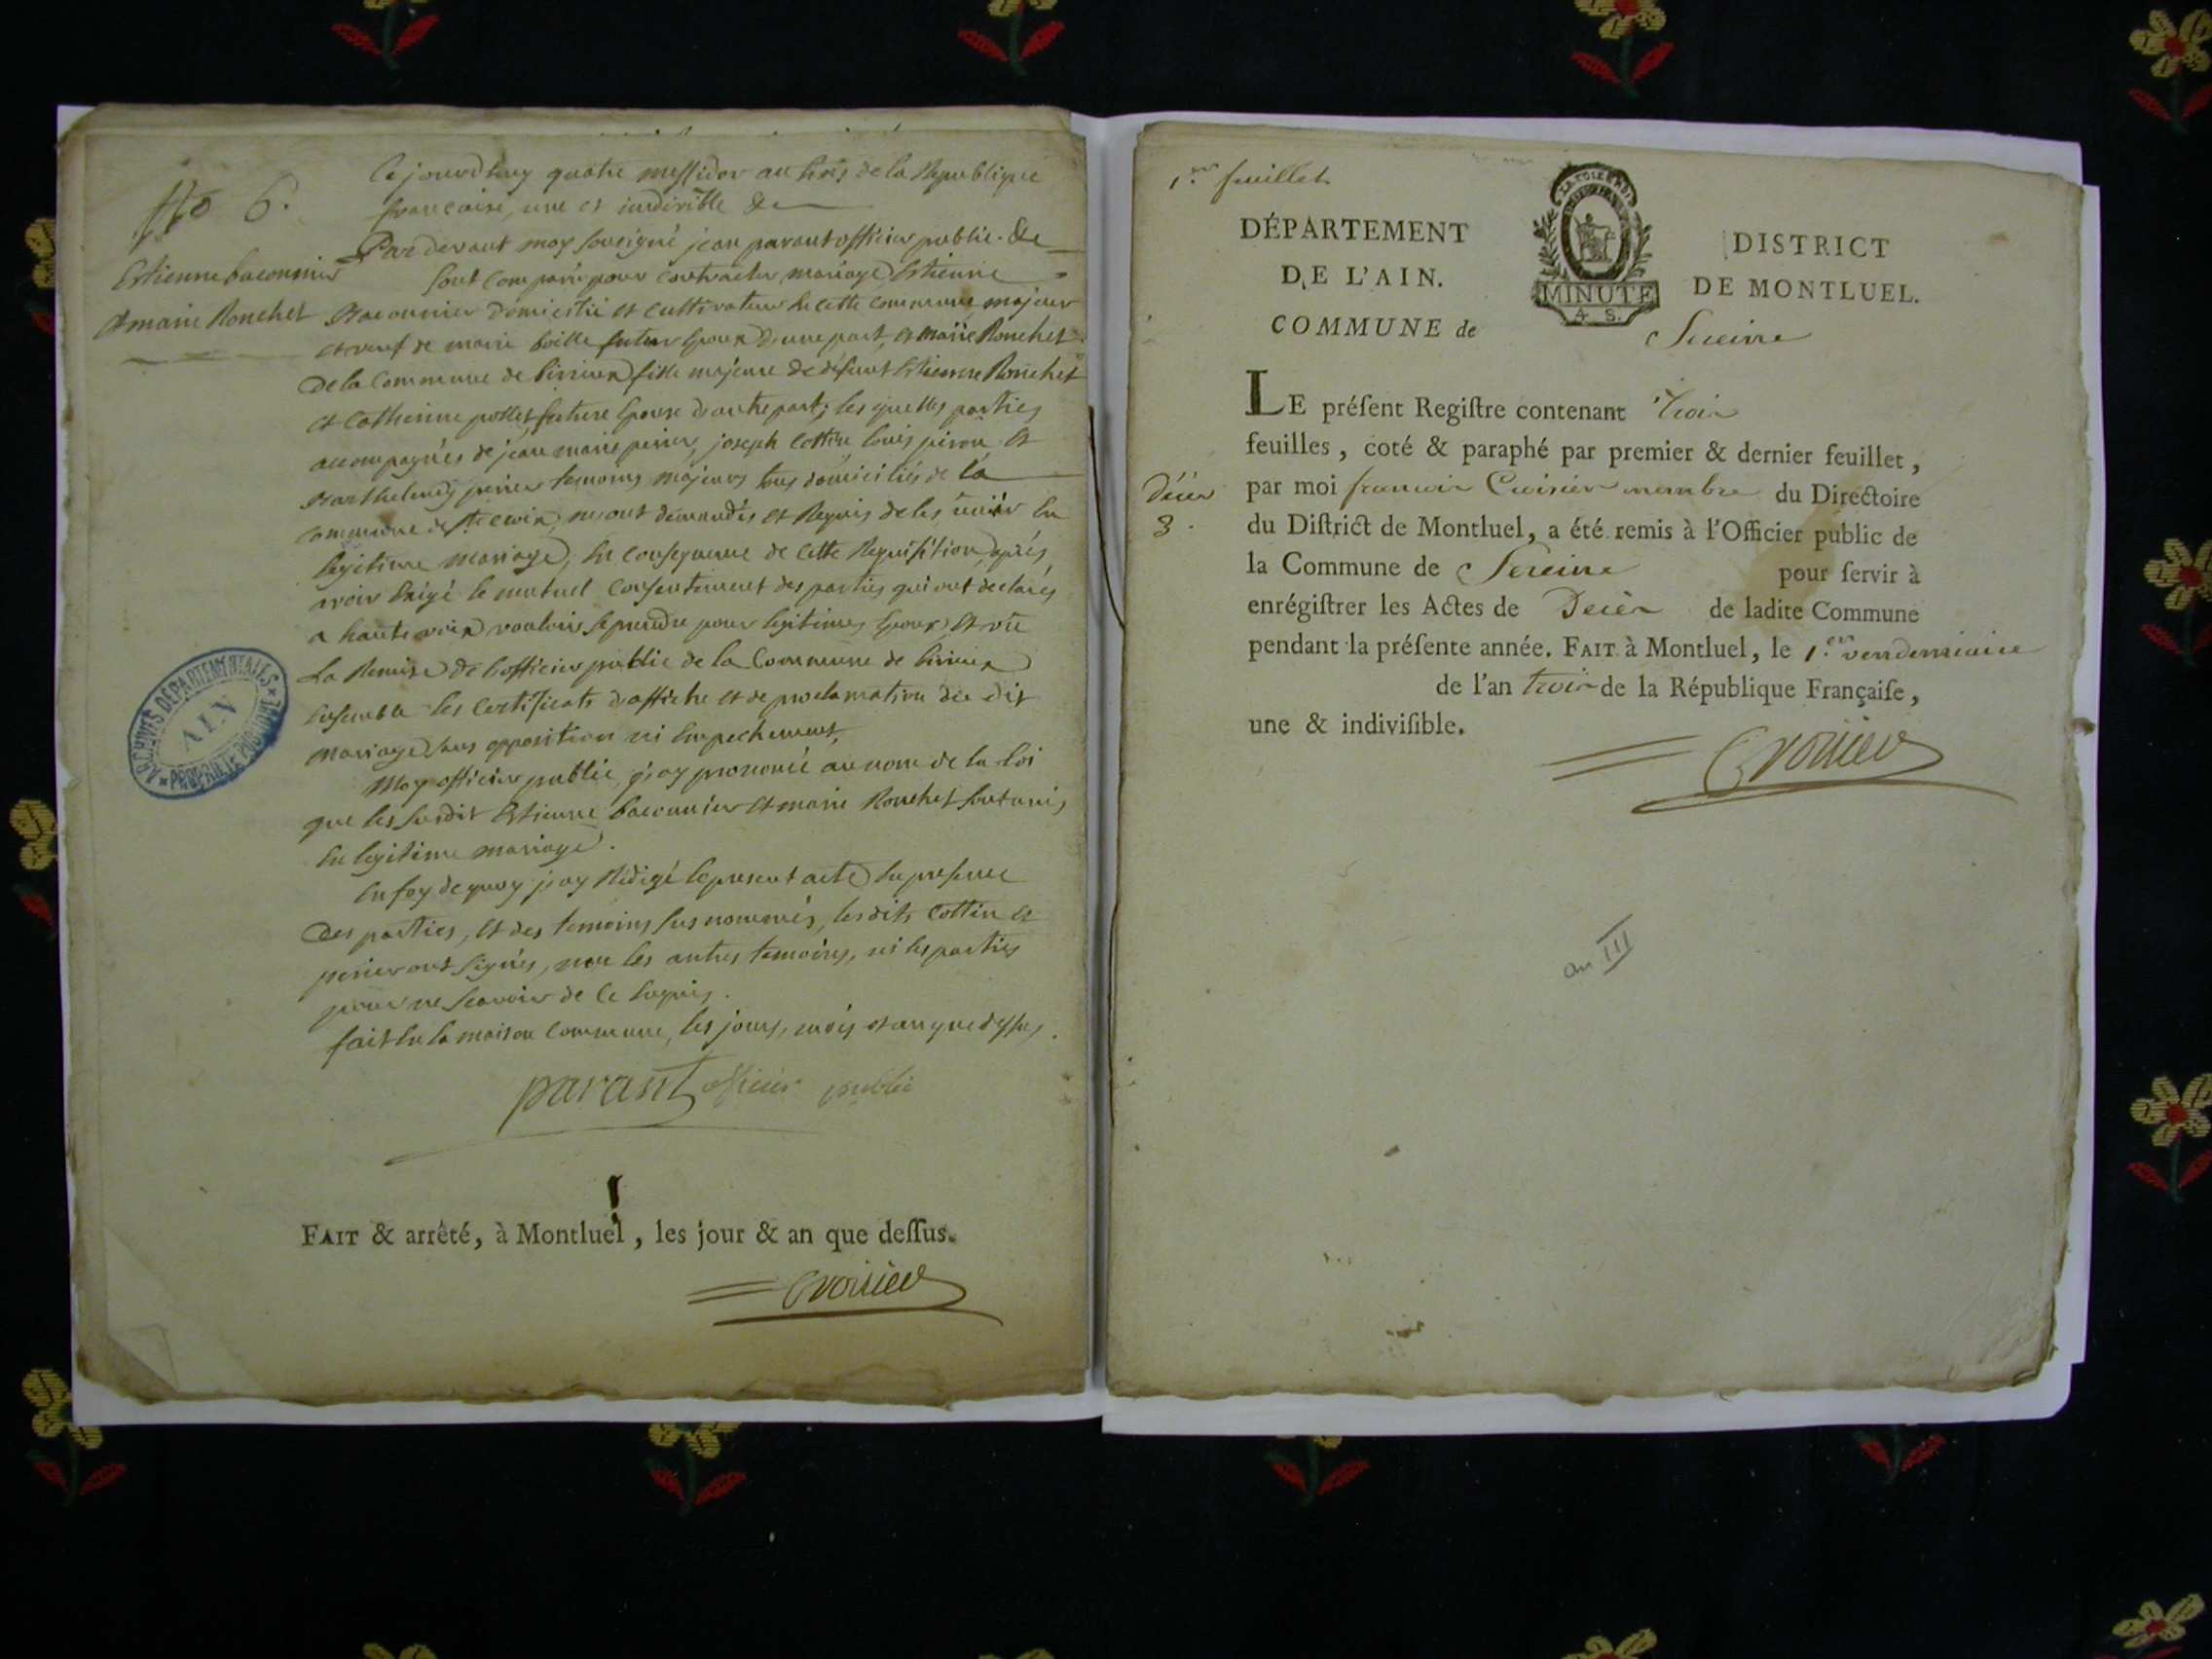 No 6.
Estienne baconnier
et marie Ronchet
Cejourdhuy quatre messidor an trois de la Republique
francaise, une et indivisible &c
Pardevant moy sousigné jean parant officier public. &c
sont comparu pour contracter mariage Estienne
Baconnier domicilié et cultivateur de cette commune, majeur
et veuf de marie futur Epoux d'une part, et marie Ronchet
de la Commune de fille majeure de defunt Estienne Ronchet
et Catherine future Epouse d'autre part; les quelles parties
accompagnés de jean marie perier, joseph Cottin, louis et
Barthelemy perier temoins majeurs tous domiciliés de la
commune de m'ont demandés et Requis de les unir en
legitime mariage, En consequence de cette Requisition, après
avoir Exigé le mutuel consentement des parties qui ont declarés
a haute voix vouloir se prendre pour legitimes Epoux, et vu
La Remise de l'officier public de la Commune de
Ensemble les Certificats d'affiche et de proclamation du dit
mariage sans opposition ni Empechement,
Moy officier public, j'ay prononcé au nom de la loi
que les susdit Estienne baconnier et marie Ronchet sont unis
En legitime mariage.
En foy de quoy j'ay Rédigé le present acte En presence
des parties, et des temoins sus nommés, les dits Cottin et
perier ont signés, non les autres temoins, ni les parties
pour ne scavoir de ce Enquis.
fait En la maison Commune, les jours, mois et an que dessus.
parant officier public
ARCHIVES DÉPARTEMENTALES
AIN
PROPRIÉTÉ PUBLIQUE
FAIT & arrêté, à Montluel, les jour & an que deſſus.
1.er feuillet
DÉPARTEMENT
DE L'AIN.
COMMUNE de
LA LOI ET LE ROI
MINUTE
4 S.
DISTRICT
DE MONTLUEL.
LE préſent Regiſtre contenant trois
feuilles, coté & paraphé par premier & dernier feuillet,
par moi françois membre du Directoire
du Diſtrict de Montluel, a été remis à l'Officier public de
la Commune de pour ſervir à
enrégiſtrer les Actes de Decès de ladite Commune
pendant la préſente année. FAIT à Montluel, le 1.er vendemiaire
de l'an trois de la République Françaiſe,
une & indiviſible.
Décès
3.
an III